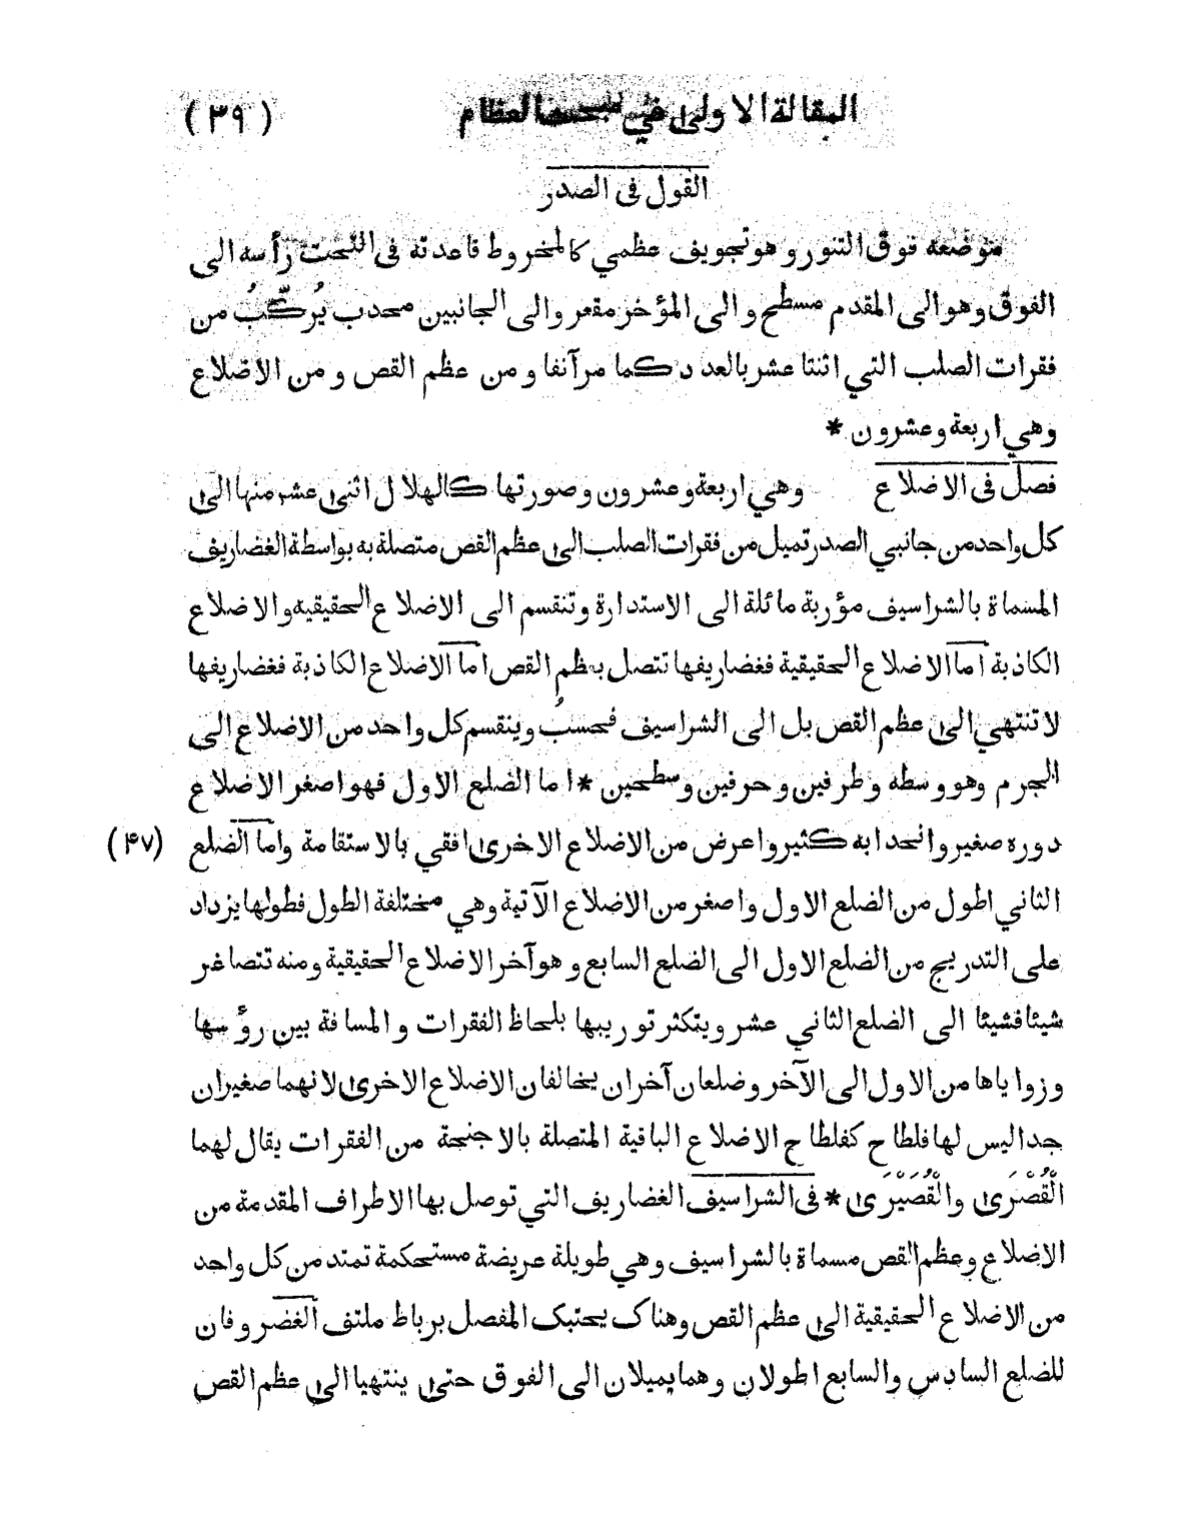 المقالة الاولى في العظام (٣٩)
القول فى الصدر
موضعه فوق التنور وهو تجويف عظمي كالمخروط قاعدته فى التحت رأسه الى
الفوق وهو الى المقدم مسطح والى المؤخر مقعر والى الجانبين محدب يُركّبُ من
فقرات الصلب التي اثنتا عشر بالعدد كما مر آنفا ومن عظم القص ومن الاضلاع
وهي اربعة وعشرون *
فصل فى الاضلاع وهي اربعة وعشرون وصورتها كالهلال اثنى عشر منها الى
كل واحد من جانبي الصدر تميل من فقرات الصلب الى عظم القص متصلة به بواسطة الغضاريف
المسماة بالشراسيف مؤربة مائلة الى الاستدارة وتنقسم الى الاضلاع الحقيقيه والاضلاع
الكاذبة اما الاضلاع الحقيقية فغضاريفها تتصل بعظم القص اما الاضلاع الكاذبة فغضاريفها
لا تنتهي الى عظم القص بل الى الشراسيف فحسبُ وينقسم كل واحد من الاضلاع الى
الجرم وهو وسطه وطرفين وحرفين وسطحين * اما الضلع الاول فهو اصغر الاضلاع
دوره صغير وانحدابه كثير واعرض من الاضلاع الاخرى افقي بالاستقامة واما الضلع (٤٧)
الثاني اطول من الضلع الاول واصغر من الاضلاع الآتية وهي مختلفة الطول فطولها يزداد
على التدريج من الضلع الاول الى الضلع السابع وهو آخر الاضلاع الحقيقية ومنه تتصاغر
شيئا فشيئا الى الضلع الثاني عشر ويتكثر توريبها بلحاظ الفقرات والمسافة بين رؤسها
وزواياها من الاول الى الآخر وضلعان آخران يخالفان الاضلاع الاخرى لانهما صغيران
جدا ليس لها فلطاح كفلطاح الاضلاع الباقية المتصلة بالاجنحة من الفقرات يقال لهما
الْقُصْرَى والْقُصَيْرَى * فى الشراسيف الغضاريف التي توصل بها الاطراف المقدمة من
الاضلاع وعظم القص مسماة بالشراسيف وهي طويلة عريضة مستحكمة تمتد من كل واحد
من الاضلاع الحقيقية الى عظم القص وهناك يحتبك المفصل برباط ملتف الغضروفان
للضلع السادس والسابع اطولان وهما يميلان الى الفوق حتى ينتهيا الى عظم القص